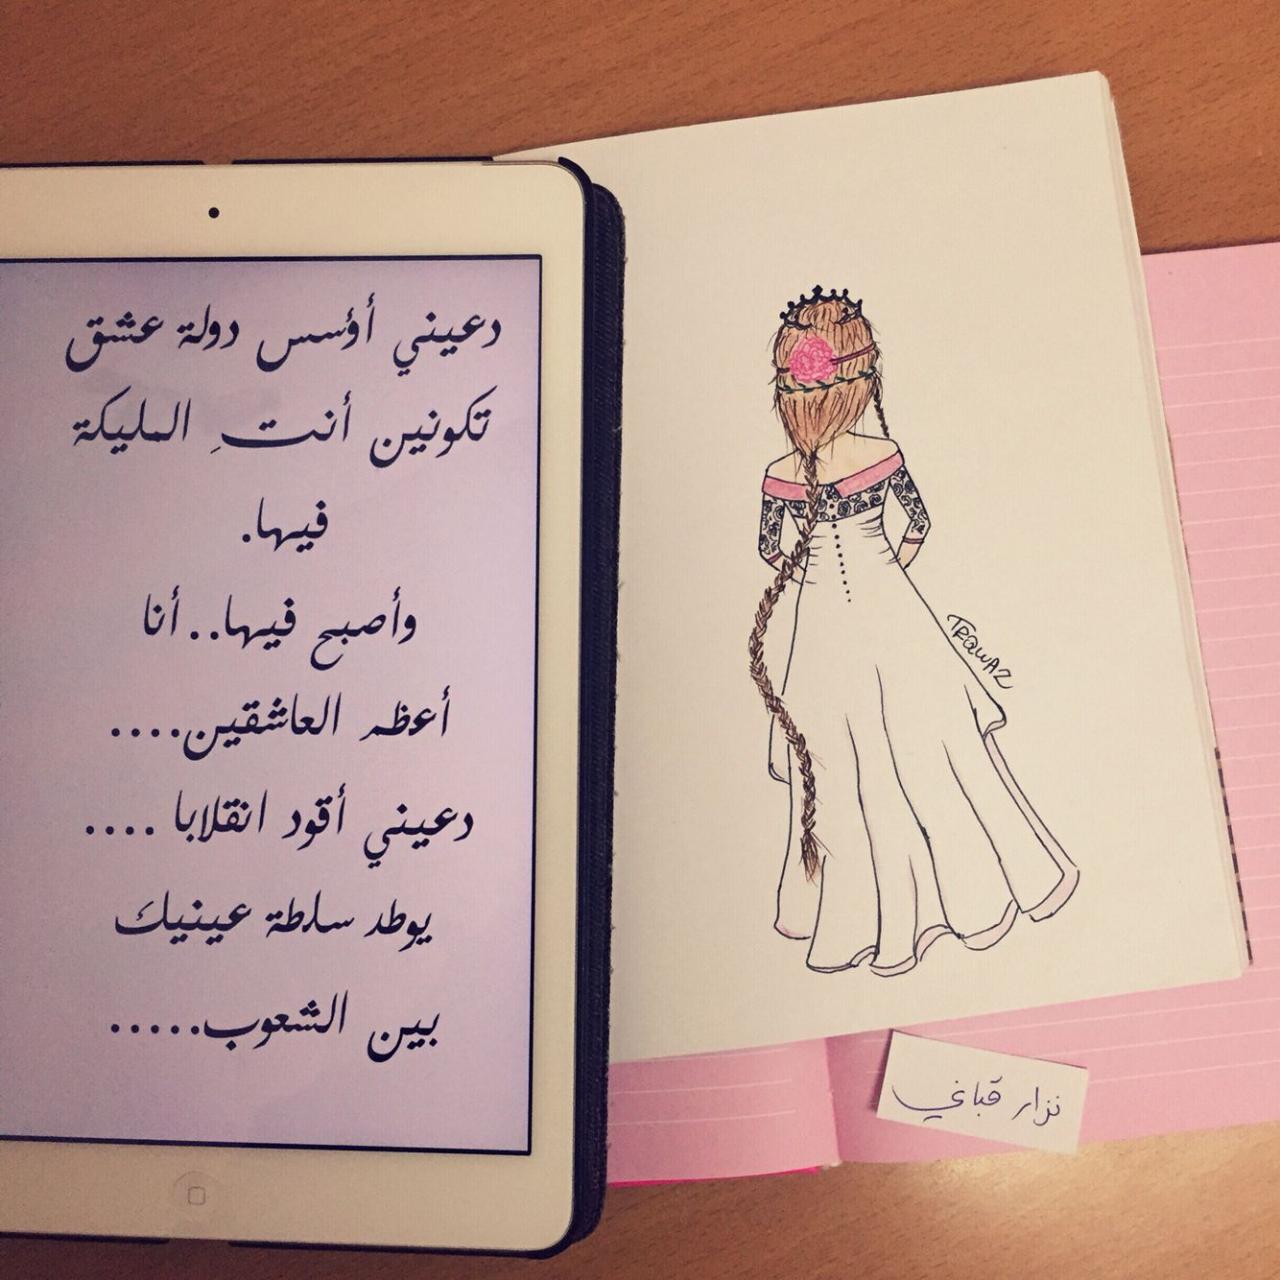 دعيني أؤسس دولة عشق
تكونين أنتِ المليكة
فيها.
وأصبح فيها..أنا
أعظم العاشقين....
دعيني أقود انقلابا ....
يوطد سلطة عينيك
بين الشعوب.....
TRQWAZ
نزار قباني